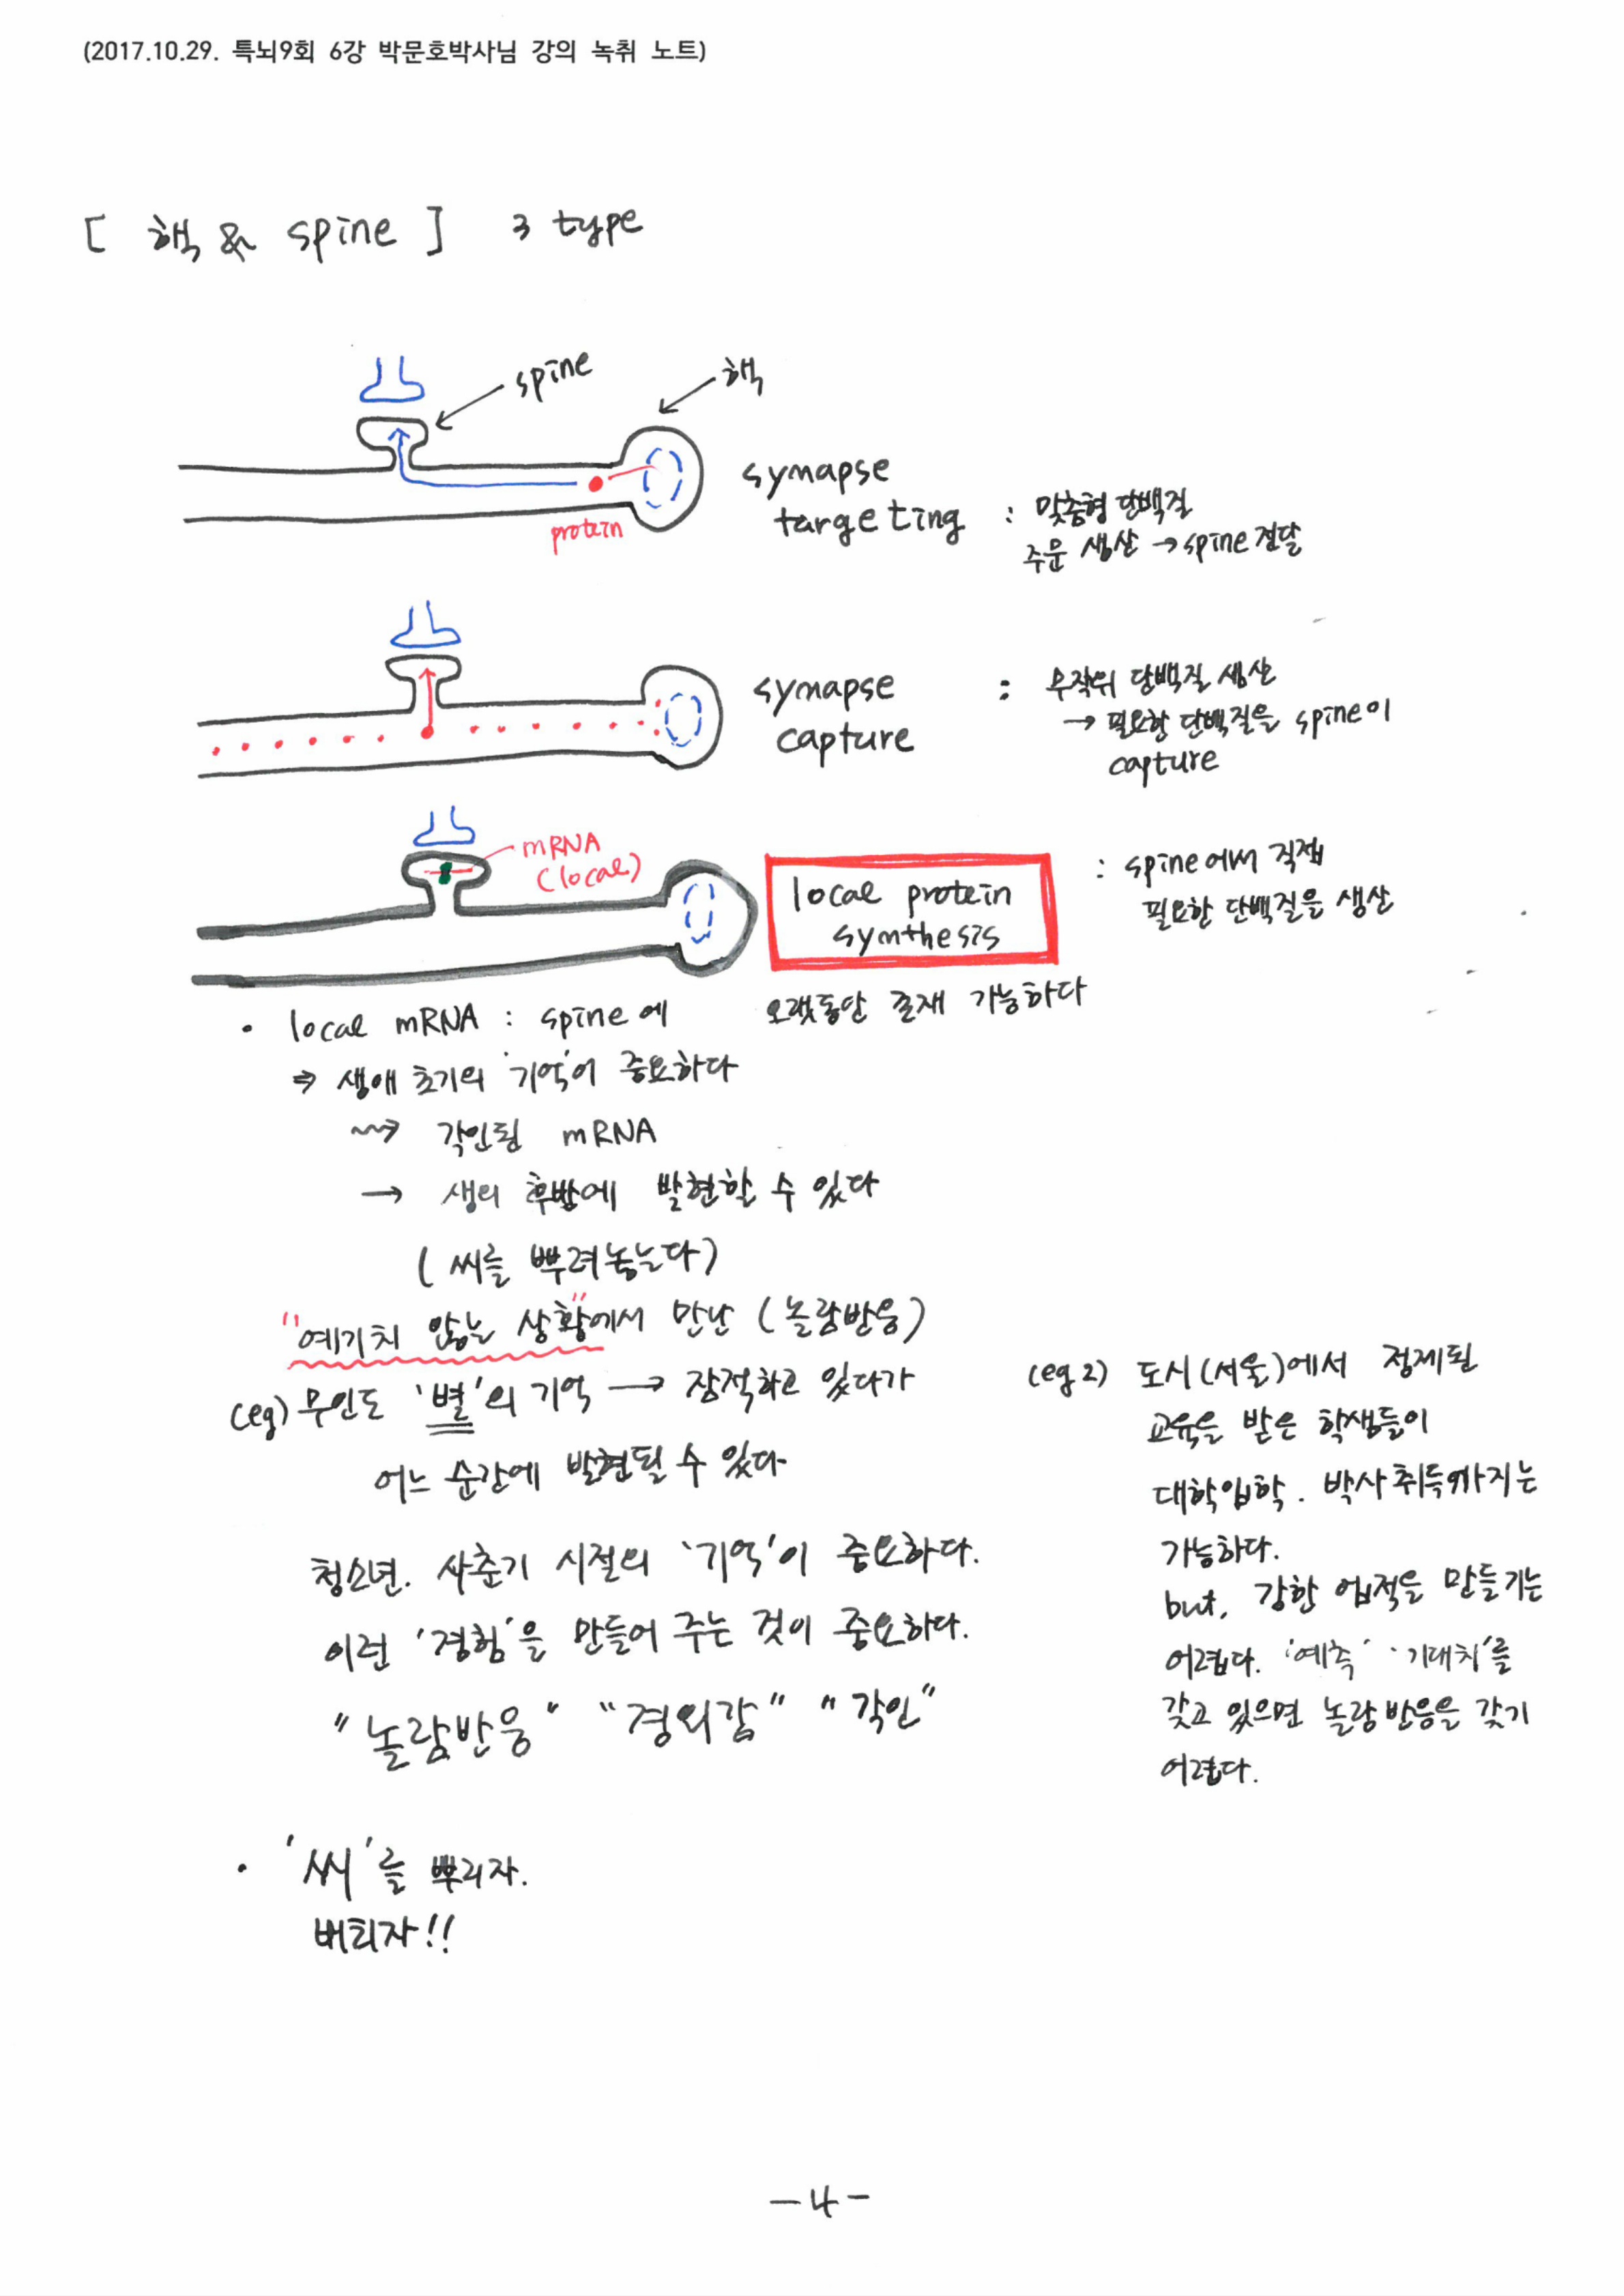 (2017.10.29. 특뇌9회 6강 박문호박사님 강의 녹취 노트)
[ 핵 & spine ] 3 type
spine
핵
protein
synapse
targeting
: 맞춤형 단백질
주문 생산 → spine 전달
synapse
capture
: 무작위 단백질 생산
→ 필요한 단백질을 spine이
capture
mRNA
(local)
local protein
synthesis
: spine에서 직접
필요한 단백질을 생산
· local mRNA : spine에 오랫동안 존재 가능하다
⇒ 생애 초기의 '기억'이 중요하다
⇝ 각인된 mRNA
→ 생의 후반에 발현할 수 있다
( 씨를 뿌려놓는다)
"예기치 않는 상황"에서 만난 (놀람반응)
(eg) 무인도 '별'의 기억 → 잠적하고 있다가
어느 순간에 발현될 수 있다
청소년. 사춘기 시절의 '기억'이 중요하다.
이런 '경험'을 만들어 주는 것이 중요하다.
"놀람반응" "경외감" "각인"
(eg 2) 도시(서울)에서 정제된
교육을 받은 학생들이
대학입학. 박사취득까지는
가능하다.
but, 강한 업적을 만들기는
어렵다. '예측' '기대치'를
갖고 있으면 놀람반응을 갖기
어렵다.
· '씨'를 뿌리자.
버티자!!
-4-